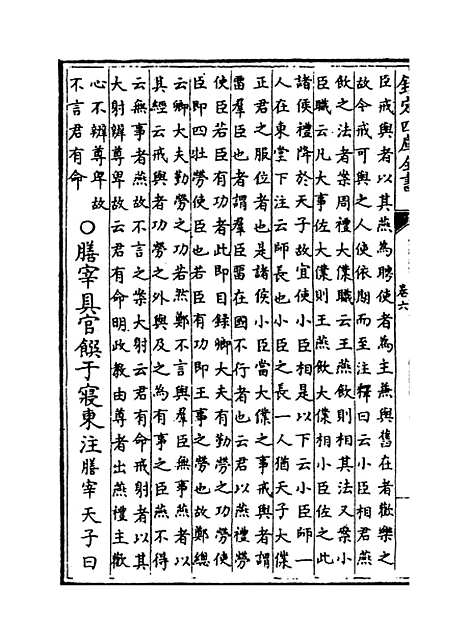 欽定四庫全書
卷六
臣戒與者以其燕為聘使者為主燕與舊在者歡樂之
故令戒可與之人使依期而至注釋曰云小臣相君燕
飲之法者案周禮大僕職云王燕飲則相其法又案小
臣職云凡大事佐大僕則王燕飲大僕相小臣佐之此
諸侯禮降於天子故宜使小臣相是以下云小臣師一
人在東堂下注云師長也小臣之長一人猶天子大僕
正君之服位者也是諸侯小臣當大僕之事戒與者謂
留羣臣也者謂羣臣留在國不行者也云君以燕禮勞
使臣若臣有功者此即目録卿大夫有勤勞之功勞使
臣即四牡勞使臣也若臣有功即王事之勞也故鄭總
云卿大夫勤勞之功若然鄭不言與羣臣無事燕者以
其經云戒與者功勞之外與及之為有事之臣燕不得
云無事者燕故不言之案大射云君有命戒射者以其
大射辨尊卑故云君有命明政教由尊者出燕禮主歡
心不辨尊卑故
不言君有命
○膳宰具官饌于寢東注膳宰天子曰